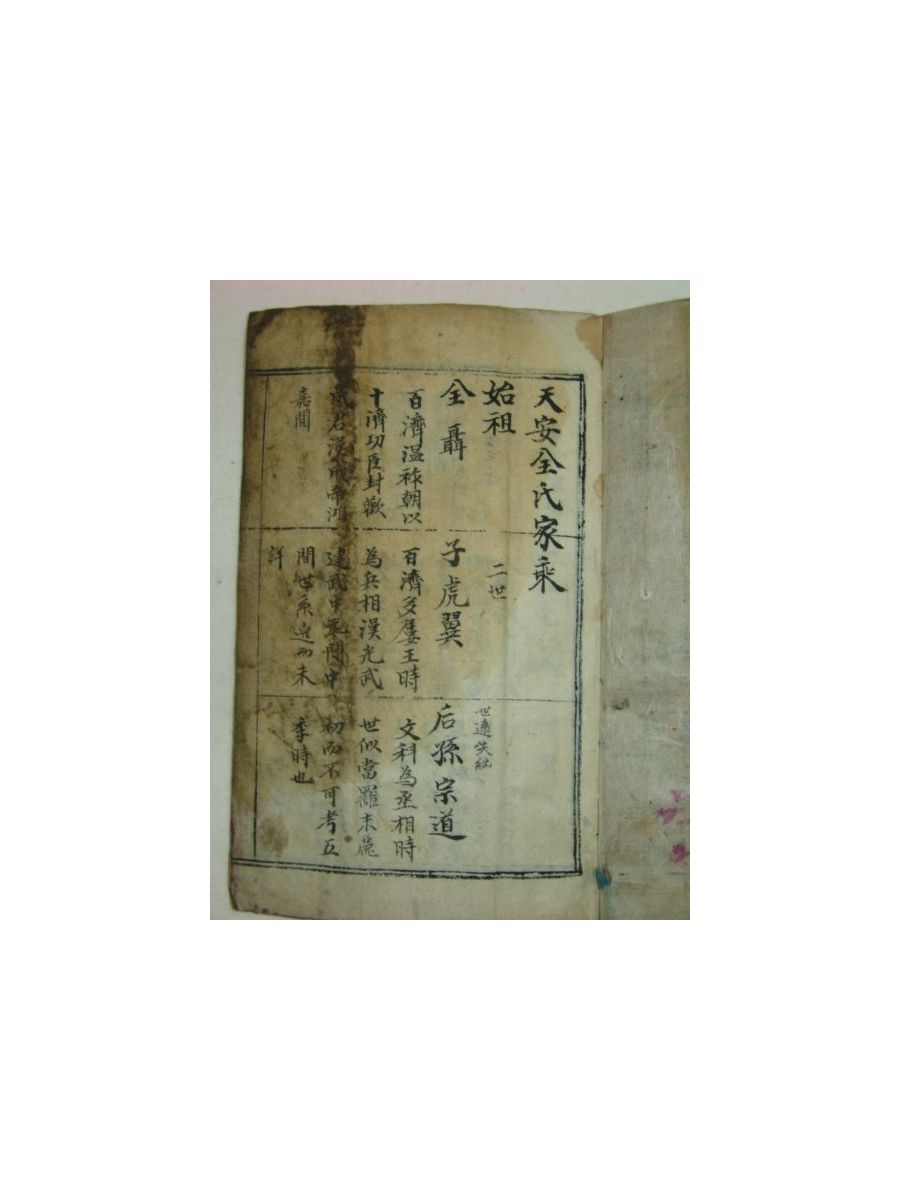 天安全氏家乘
始祖
全聶
百濟温祚朝以
十濟功臣封歡
城君漢成帝鴻
嘉間
二世
子虎翼
百濟多婁王時
為兵相漢光武
建武中元
間世系遠而未
詳
世遠失紀
后孫宗道
文科為丞相時
世似當羅末麗
初而不可考五
季時也